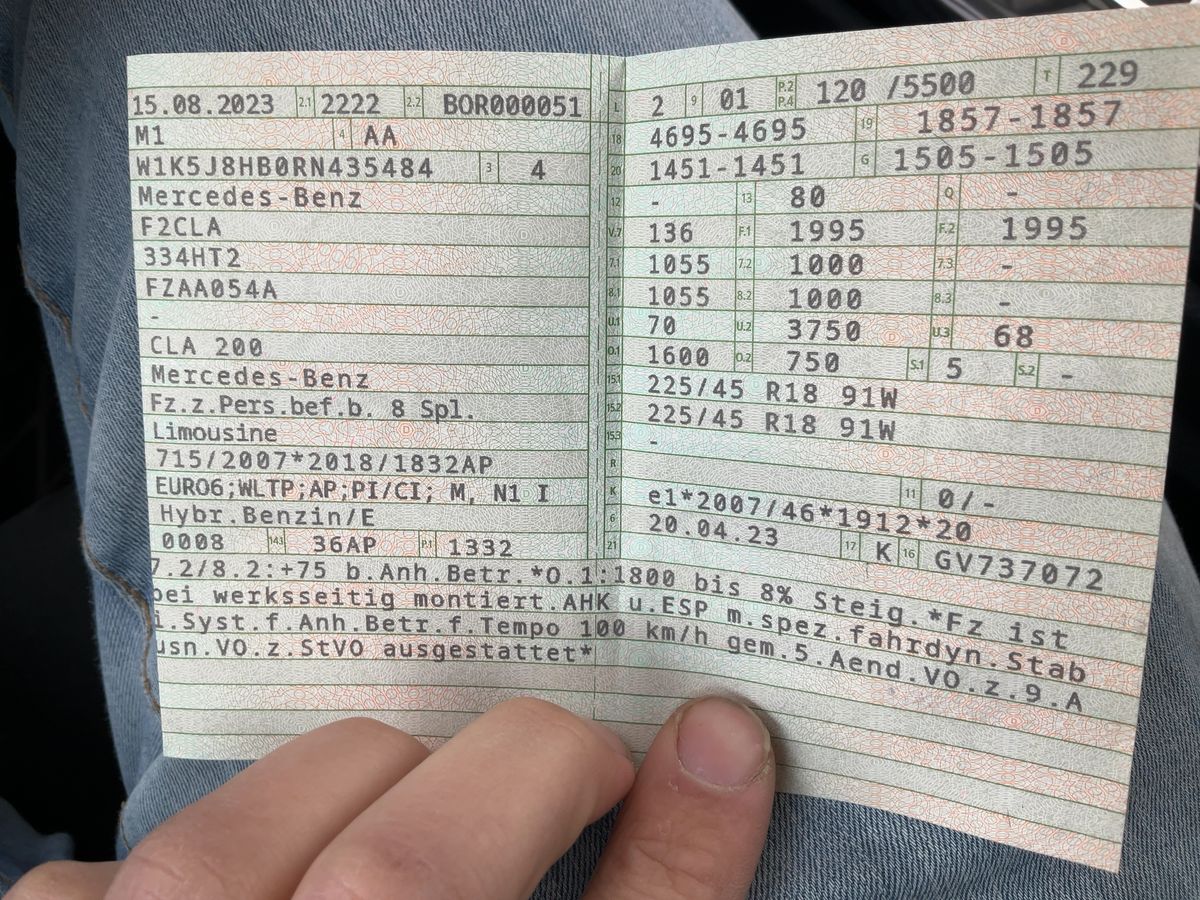 15.08.2023 2.1 2222 2.2 BOR000051
M1 4 AA
W1K5J8HB0RN435484 3 4
Mercedes-Benz
F2CLA
334HT2
FZAA054A
-
CLA 200
Mercedes-Benz
Fz.z.Pers.bef.b. 8 Spl.
Limousine
715/2007*2018/1832AP
EURO6;WLTP;AP;PI/CI; M, N1 I
Hybr.Benzin/E
0008 14.1 36AP P.1 1332
L 2 9 01 P.2 P.4 120 /5500 T 229
18 4695-4695 19 1857-1857
20 1451-1451 G 1505-1505
12 - 13 80 Q -
V.7 136 F.1 1995 F.2 1995
7.1 1055 7.2 1000 7.3 -
8.1 1055 8.2 1000 8.3 -
U.1 70 U.2 3750 U.3 68
O.1 1600 O.2 750 S.1 5 S.2 -
15.1 225/45 R18 91W
15.2 225/45 R18 91W
15.3 -
R 11 0/-
K e1*2007/46*1912*20
6 20.04.23 17 K 16 GV737072
21
7.2/8.2:+75 b.Anh.Betr.*O.1:1800 bis 8% Steig.*Fz ist
bei werksseitig montiert.AHK u.ESP m.spez.fahrdyn.Stab
i.Syst.f.Anh.Betr.f.Tempo 100 km/h gem.5.Aend.VO.z.9.A
usn.VO.z.StVO ausgestattet*